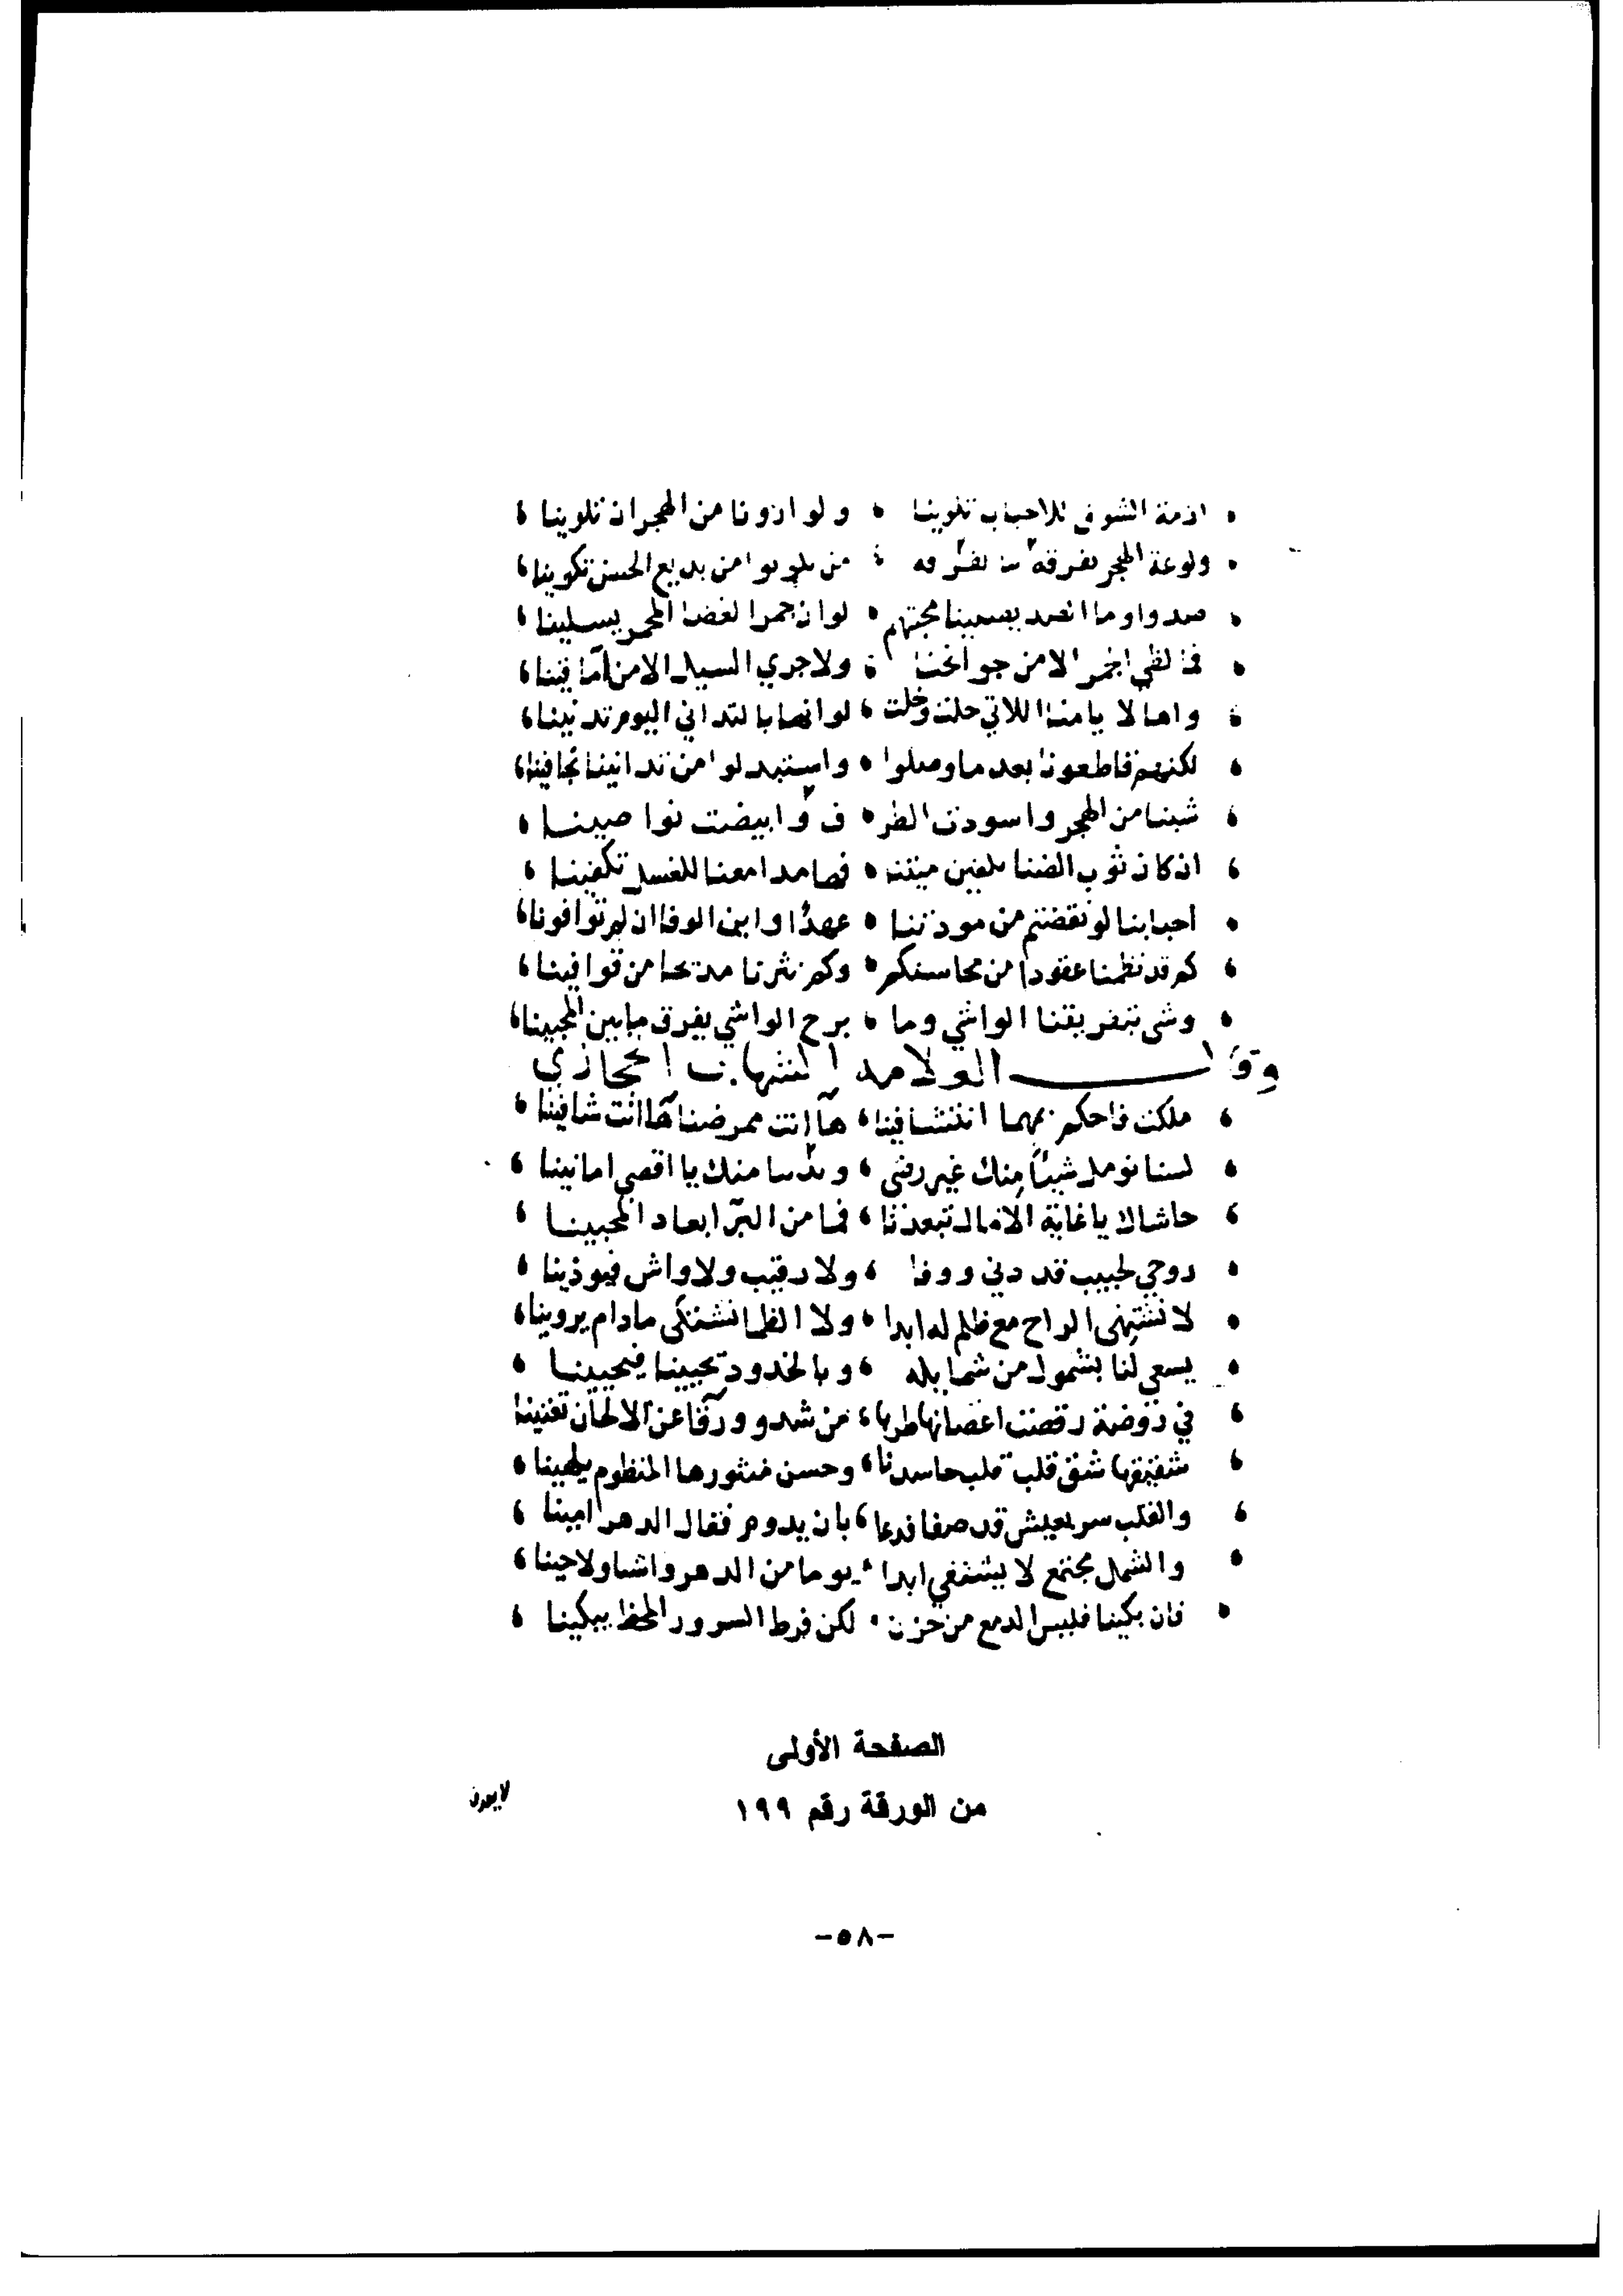 ازمة الشوق للاحباب تلوينا ، ولو ارونا من الهجران تلوينا ،
ولوعة الهجر بفرقة ، من بديع الحسن تكوينا ،
صدوا وما الصد يصبينا محبتهم ، لو ان جمر الغضا المحمر يسلينا ،
فما لظى الجمر الا من جوانحنا ، ولا جري السيل الا من اماقينا ،
واها لايامنا اللاتي حلت وخلت ، لو انها بالتداني اليوم تدنينا ،
لكنهم قاطعونا بعد ما وصلوا ، واستبدلوا من تدانينا تجافينا ،
شبنا من الهجر واسودت الطر ، ف وابيضت نواصينا ،
اذ كان ثوب الضنا ميتنا ، فها مدامعنا للغسل تكفينا ،
احبابنا لو نقضتم من مودتنا ، عهدا واين الوفا ان لم توافونا ،
كم قد نظمنا عقودا من محاسنكم ، وكم نثرنا من قوافينا ،
وشى بتفريقنا الواشي وما ، برح الواشي يفرق ما بين المحبينا ،
وقال العلامه الشهاب الحجازي
ملكت فاحكم بمهما انت شافينا ، ها انت ممرضنا ها انت شافينا ،
لسنا نومل شيئا منك غير رضى ، منك يا اقصى امانينا ،
حاشاك يا غاية الامال تبعدنا ، فما من البر ابعاد المحبينا ،
روحي لحبيب قد دنى ووفا ، ولا رقيب ولا واش فيوذينا ،
لا نشتهى الراح مع ظلم له ابدا ، ولا الظما نشتكى ما دام يروينا ،
يسعى لنا بشمول من شمايله ، وبالخدود تحيينا فيحيينا ،
في روضة رقصت اغصانها طربا ، من شدو ورقا عن الالحان تغنينا
شقيقها شق قلب قلب حاسدنا ، وحسن منثورها المنظوم يلهينا ،
والقلب سر بعيش قد صفا فدعا ، بان يدوم فقال الدهر امينا ،
والشمل مجتمع لا ينقضي ابدا ، يوما من الدهر واشا ولاحينا ،
فان بكينا فليس الدمع من حزن ، لكن فرط السرور المحظ يبكينا ،
الصفحة الأولى
من الورقة رقم ١٩٩
-٥٨-